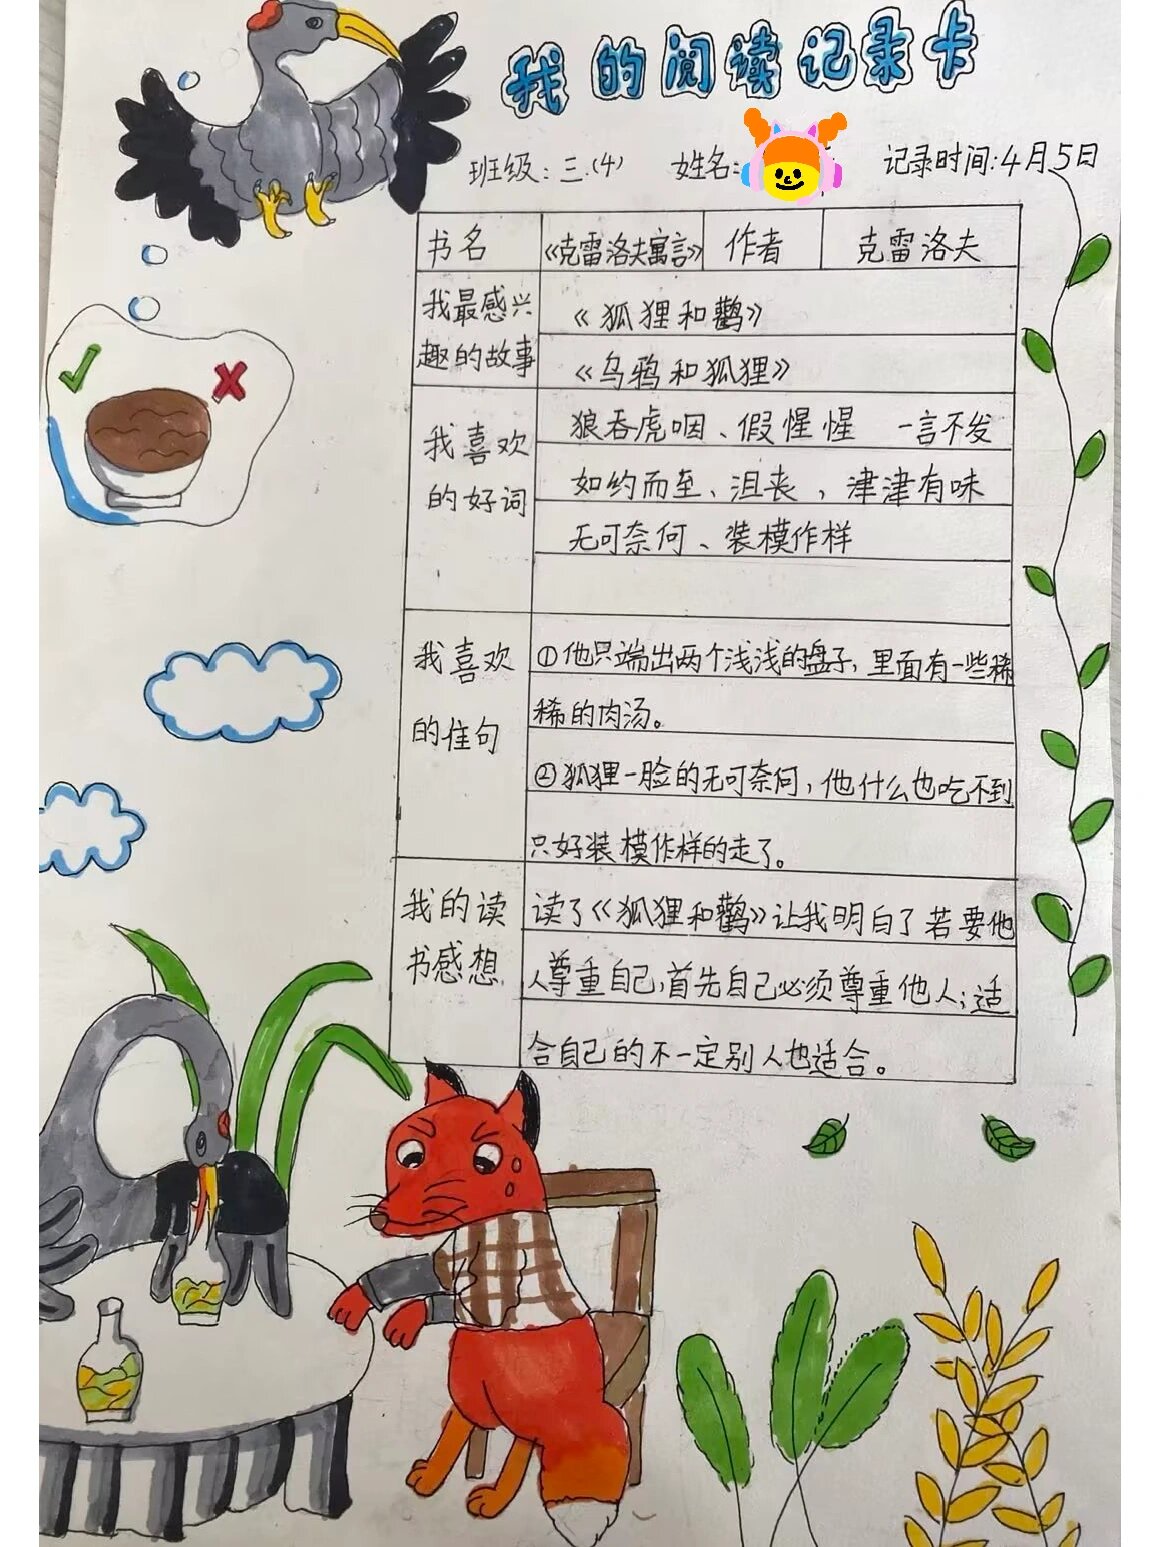 我的阅读记录卡
班级：三.(4) 姓名： 记录时间:4月5日
书名 《克雷洛夫寓言》 作者 克雷洛夫
我最感兴趣的故事
《狐狸和鹳》
《乌鸦和狐狸》
我喜欢的好词
狼吞虎咽、假惺惺 一言不发
如约而至、沮丧，津津有味
无可奈何、装模作样
我喜欢的佳句
①他只端出两个浅浅的盘子，里面有一些稀
稀的肉汤。
②狐狸一脸的无可奈何，他什么也吃不到
只好装模作样的走了。
我的读书感想
读了《狐狸和鹳》让我明白了若要他
人尊重自己，首先自己必须尊重他人；适
合自己的不一定别人也适合。